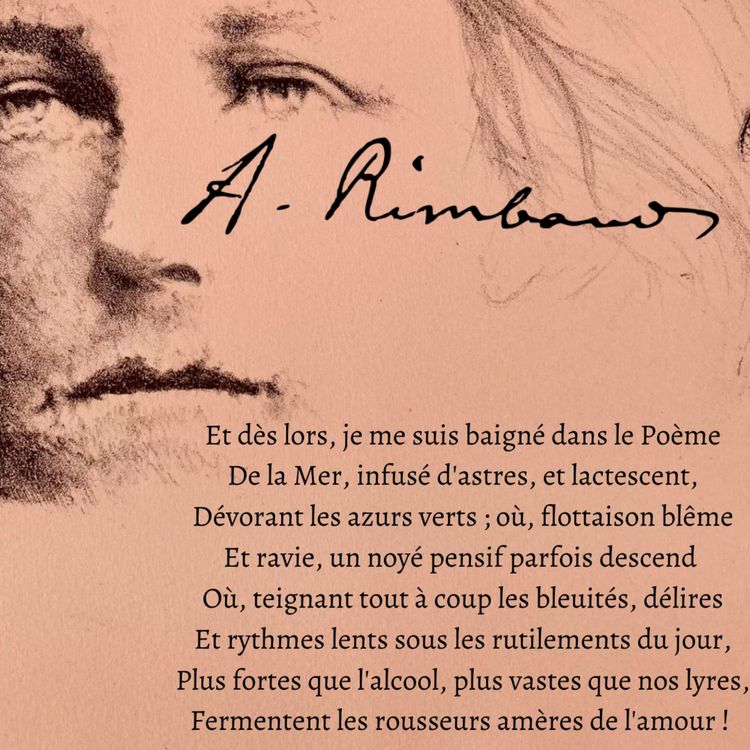 A. Rimbaud
Et dès lors, je me suis baigné dans le Poème
De la Mer, infusé d'astres, et lactescent,
Dévorant les azurs verts ; où, flottaison blême
Et ravie, un noyé pensif parfois descend
Où, teignant tout à coup les bleuités, délires
Et rythmes lents sous les rutilements du jour,
Plus fortes que l'alcool, plus vastes que nos lyres,
Fermentent les rousseurs amères de l'amour !